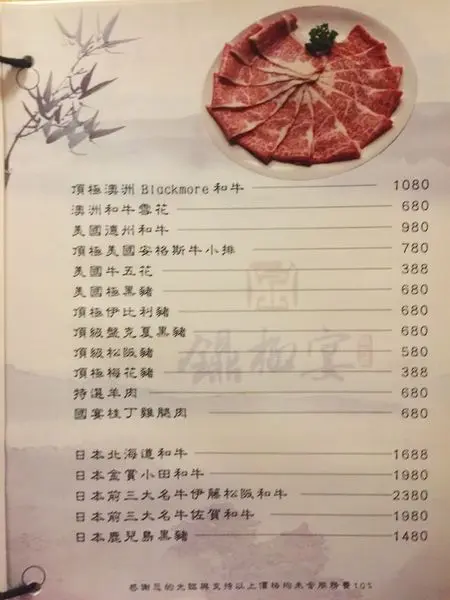 頂極澳洲 Blackmore 和牛 1080
澳洲和牛雪花 680
美國德州和牛 980
頂極美國安格斯牛小排 780
美國牛五花 388
美國極黑豬 680
頂極伊比利豬 680
頂級盤克夏黑豬 680
頂級松阪豬 580
頂極梅花豬 388
特選羊肉 680
國宴桂丁雞腿肉 680
日本北海道和牛 1688
日本金賞小田和牛 1980
日本前三大名牛伊藤松阪和牛 2380
日本前三大名牛佐賀和牛 1980
日本鹿兒島黑豬 1480
感謝您的光臨與支持以上價格均未含服務費10%